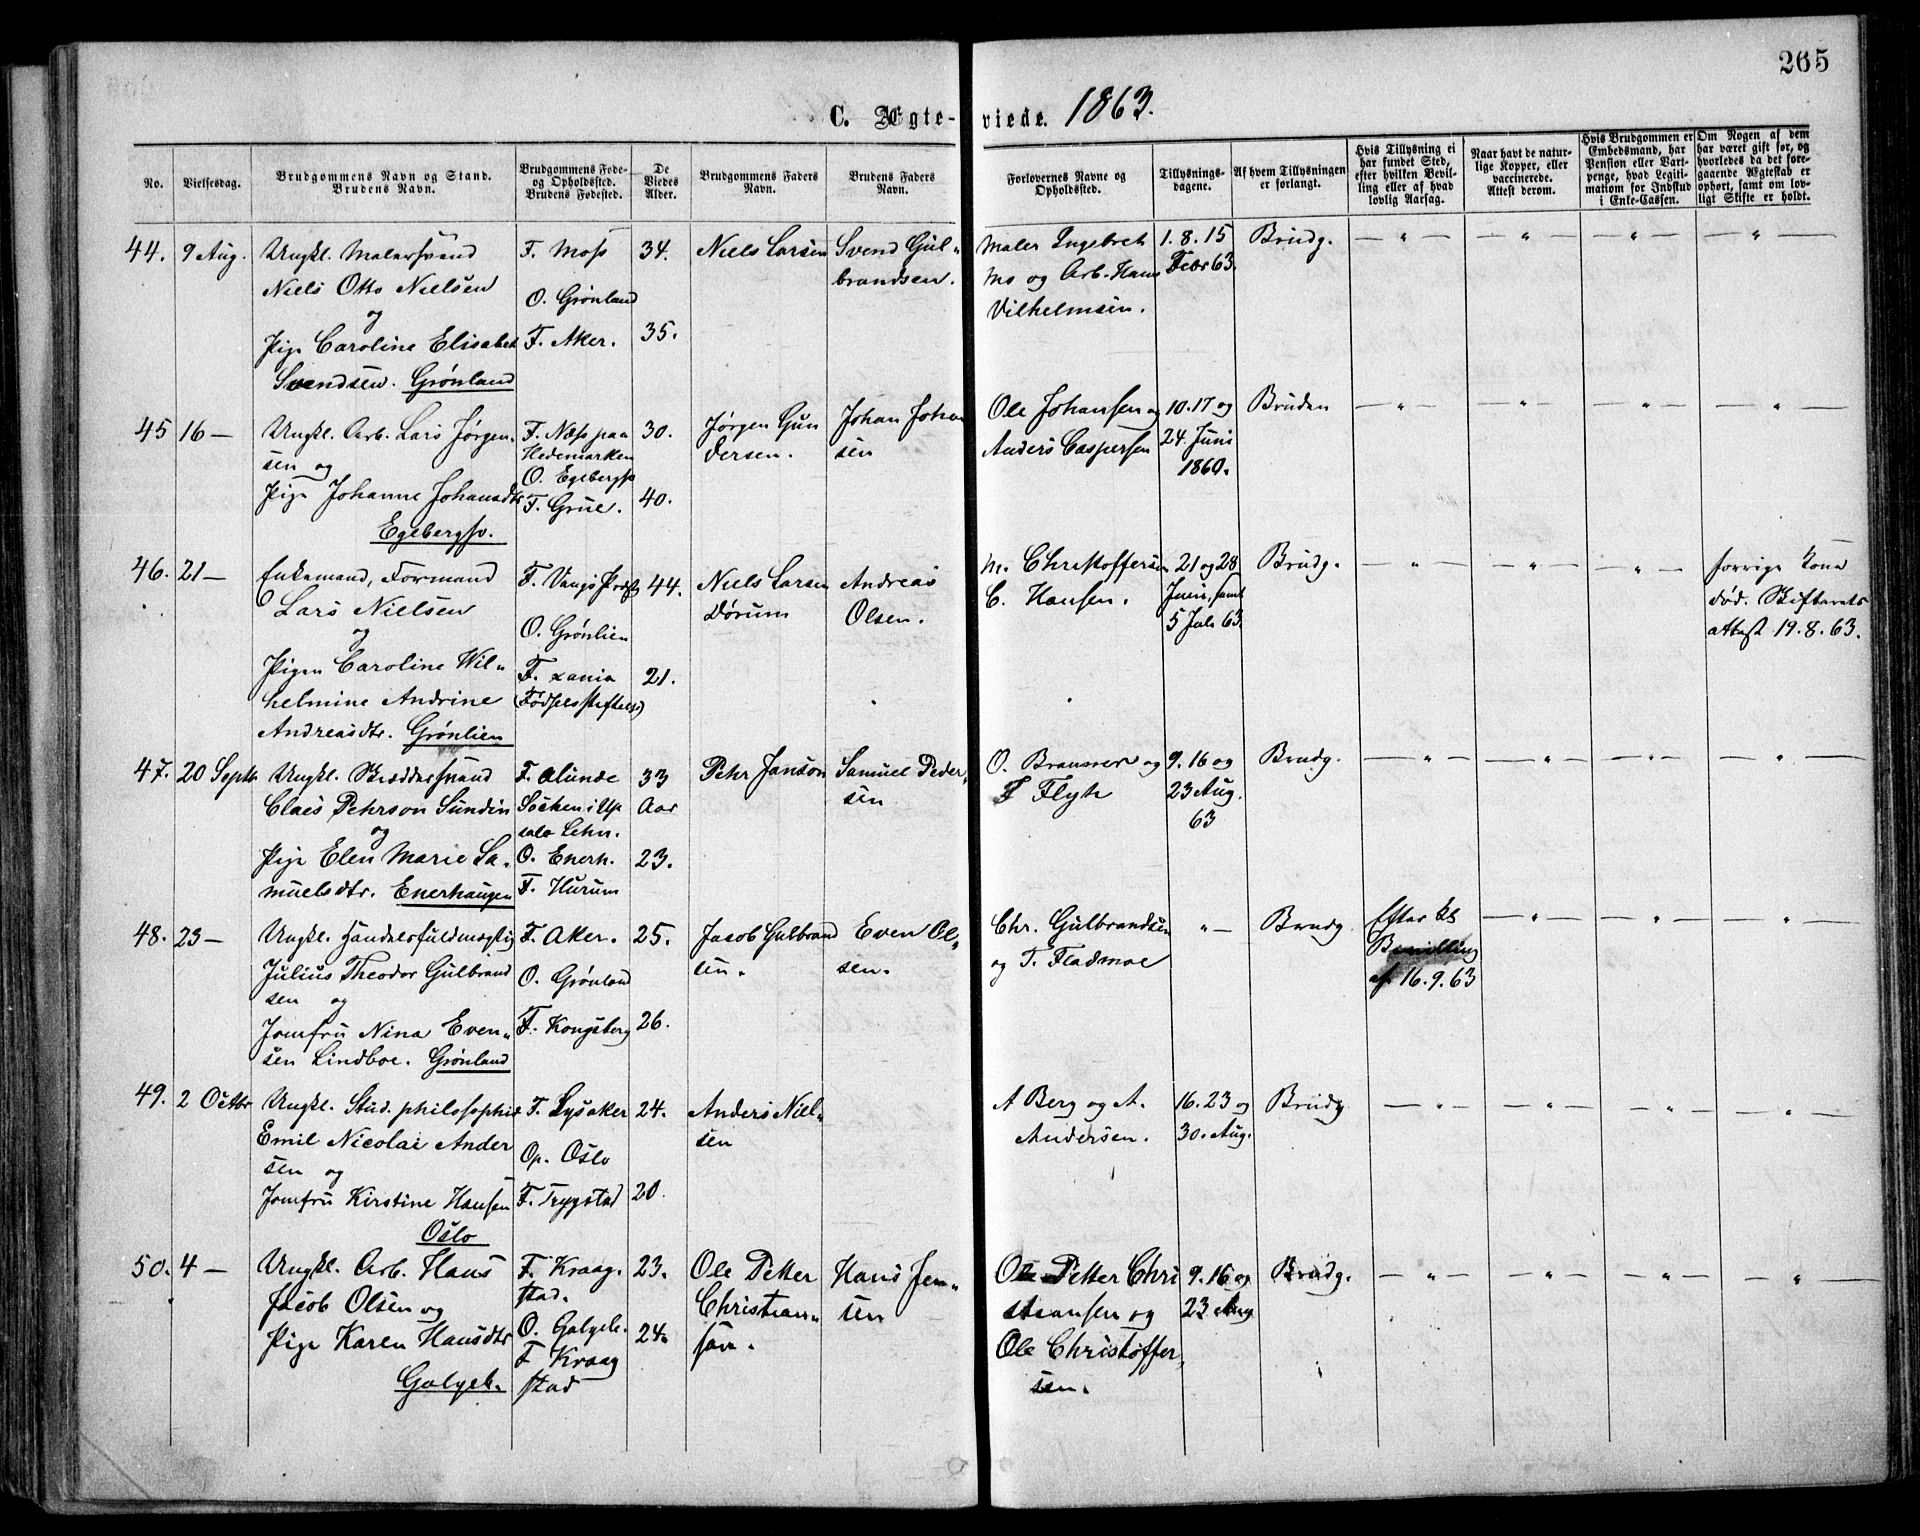 265
C. Ægteviede. 1863.
No.
Vielsesdag.
Brudgommens Navn og Stand.
Brudens Navn.
Brudgommens Føde-
og Opholdssted.
Brudens Fødested.
De
Viedes
Alder.
Brudgommens Faders
Navn.
Brudens Faders
Navn.
Forlovernes Navne og
Opholdssted.
Tillysnings-
dagene.
Af hvem Tillysningen
er forlangt.
Hvis Tillysning ei
har fundet Sted,
efter hvilken Bevil-
ling eller af hvad
lovlig Aarsag.
Naar havt de natur-
lige Kopper, eller
vaccinerede.
Attest derom.
Hvis Brudgommen er
Embedsmand, har
Pension eller Vart-
penge, hvad Legiti-
mation for Indskud
i Enke-Cassen.
Om Nogen af dem
har været gift før, og
hvorledes da det fore-
gaaende Ægteskab er
ophørt, samt om lov-
ligt Skifte er holdt.
44. 9 Aug.
Ungkl. Malersvend
Niels Otto Nielsen
og
Pige Caroline Elisabet
Svendsen. Grønland
F. Moss
O. Grønland
F. Aker.
34.
35.
Niels Larsen
Svend Gul-
brandsen.
Maler Ingebret
Mo og Arb. Hans
Vilhelmsen.
1. 8. 15
Febr 63.
Brudg.
— " — — " — — " — — " —
45 16 —
Ungkl. Arb. Lars Jørgen-
sen og
Pige Johanne Johansdtr
Egebergsv.
F. Næss paa
Hedemarken
O. Egebergsv
F. Grue.
30.
40.
Jørgen Gun
dersen.
Johan Johan
sen
Ole Johansen og
Anders Caspersen
10. 17 og
24. Juni
1860.
Bruden
— " — — " — — " — — " —
46. 21 —
Enkemand, Formand
Lars Nielsen
og
Pigen Caroline Wil-
helmine Andrine
Andreasdtr. Grønlien
F. Vangs Præst
O. Grønlien
F. xania
(Fødselsstiftelse)
44.
21.
Niels Larsen
Dørum
Andreas
Olsen.
M. Christoffersen
C. Hansen.
21 og 28
Juni, samt
5 Juli 63.
Brudg.
— " — — " — — " —
forrige Kone
død. Skifterets
attest 19. 8. 63.
47. 20 Septb.
Ungkl. Bræddersvend
Claes Pehrson Sundin
og
Pige Elen Marie Sa-
muelsdtr. Enerhaugen
F. Alunda
Socken i Up
sala Lehn.
O. Enerh.
F. Hurum
33
Aar
23.
Pehr Janson
Samuel Peder-
sen
O. Bransrer og
F Flyh
9. 16 og
23 Aug.
63
Brudg.
— " — — " — — " — — " —
48. 23 —
Ungkl. Handelsfuldmægtig
Julius Theodor Gulbrand
sen og
Jomfru Nina Even-
sen Lindboe. Grønland
F. Aker.
O. Grønland
F. Kongsberg
25.
26.
Jacob Gulbrand
sen.
Even Ol-
sen.
Chr. Gulbrandsen
og T. Fladmoe
" —
Brudg
Efter kl
Bevilling
af 16. 9. 63
— " — — " — — " —
49. 2 Octbr
Ungkl. Stud. philosophie
Emil Nicolai Ander
sen og
Jomfru Kirstine Hansen
Oslo
F. Lysaker
Op. Oslo
F. Trygstad
24.
20.
Anders Niel-
sen
A Berg og A.
Andersen.
16. 23 og
30. Aug.
Brudg
— " — — " — — " — — " —
50. 4 —
Ungkl. Arb. Hans
Jacob Olsen og
Pige Karen Hansdtr
Galgeb.
F. Kraag-
stad.
O. Galgeb.
F Kraag
stad
23.
24.
Ole Petter
Christian-
sen.
Hans Jen-
sen
Ole Petter Chri
stiansen og
Ole Christoffer,
sen.
9. 16 og
23 Aug
Brudg.
— " — — " — — " — — " —